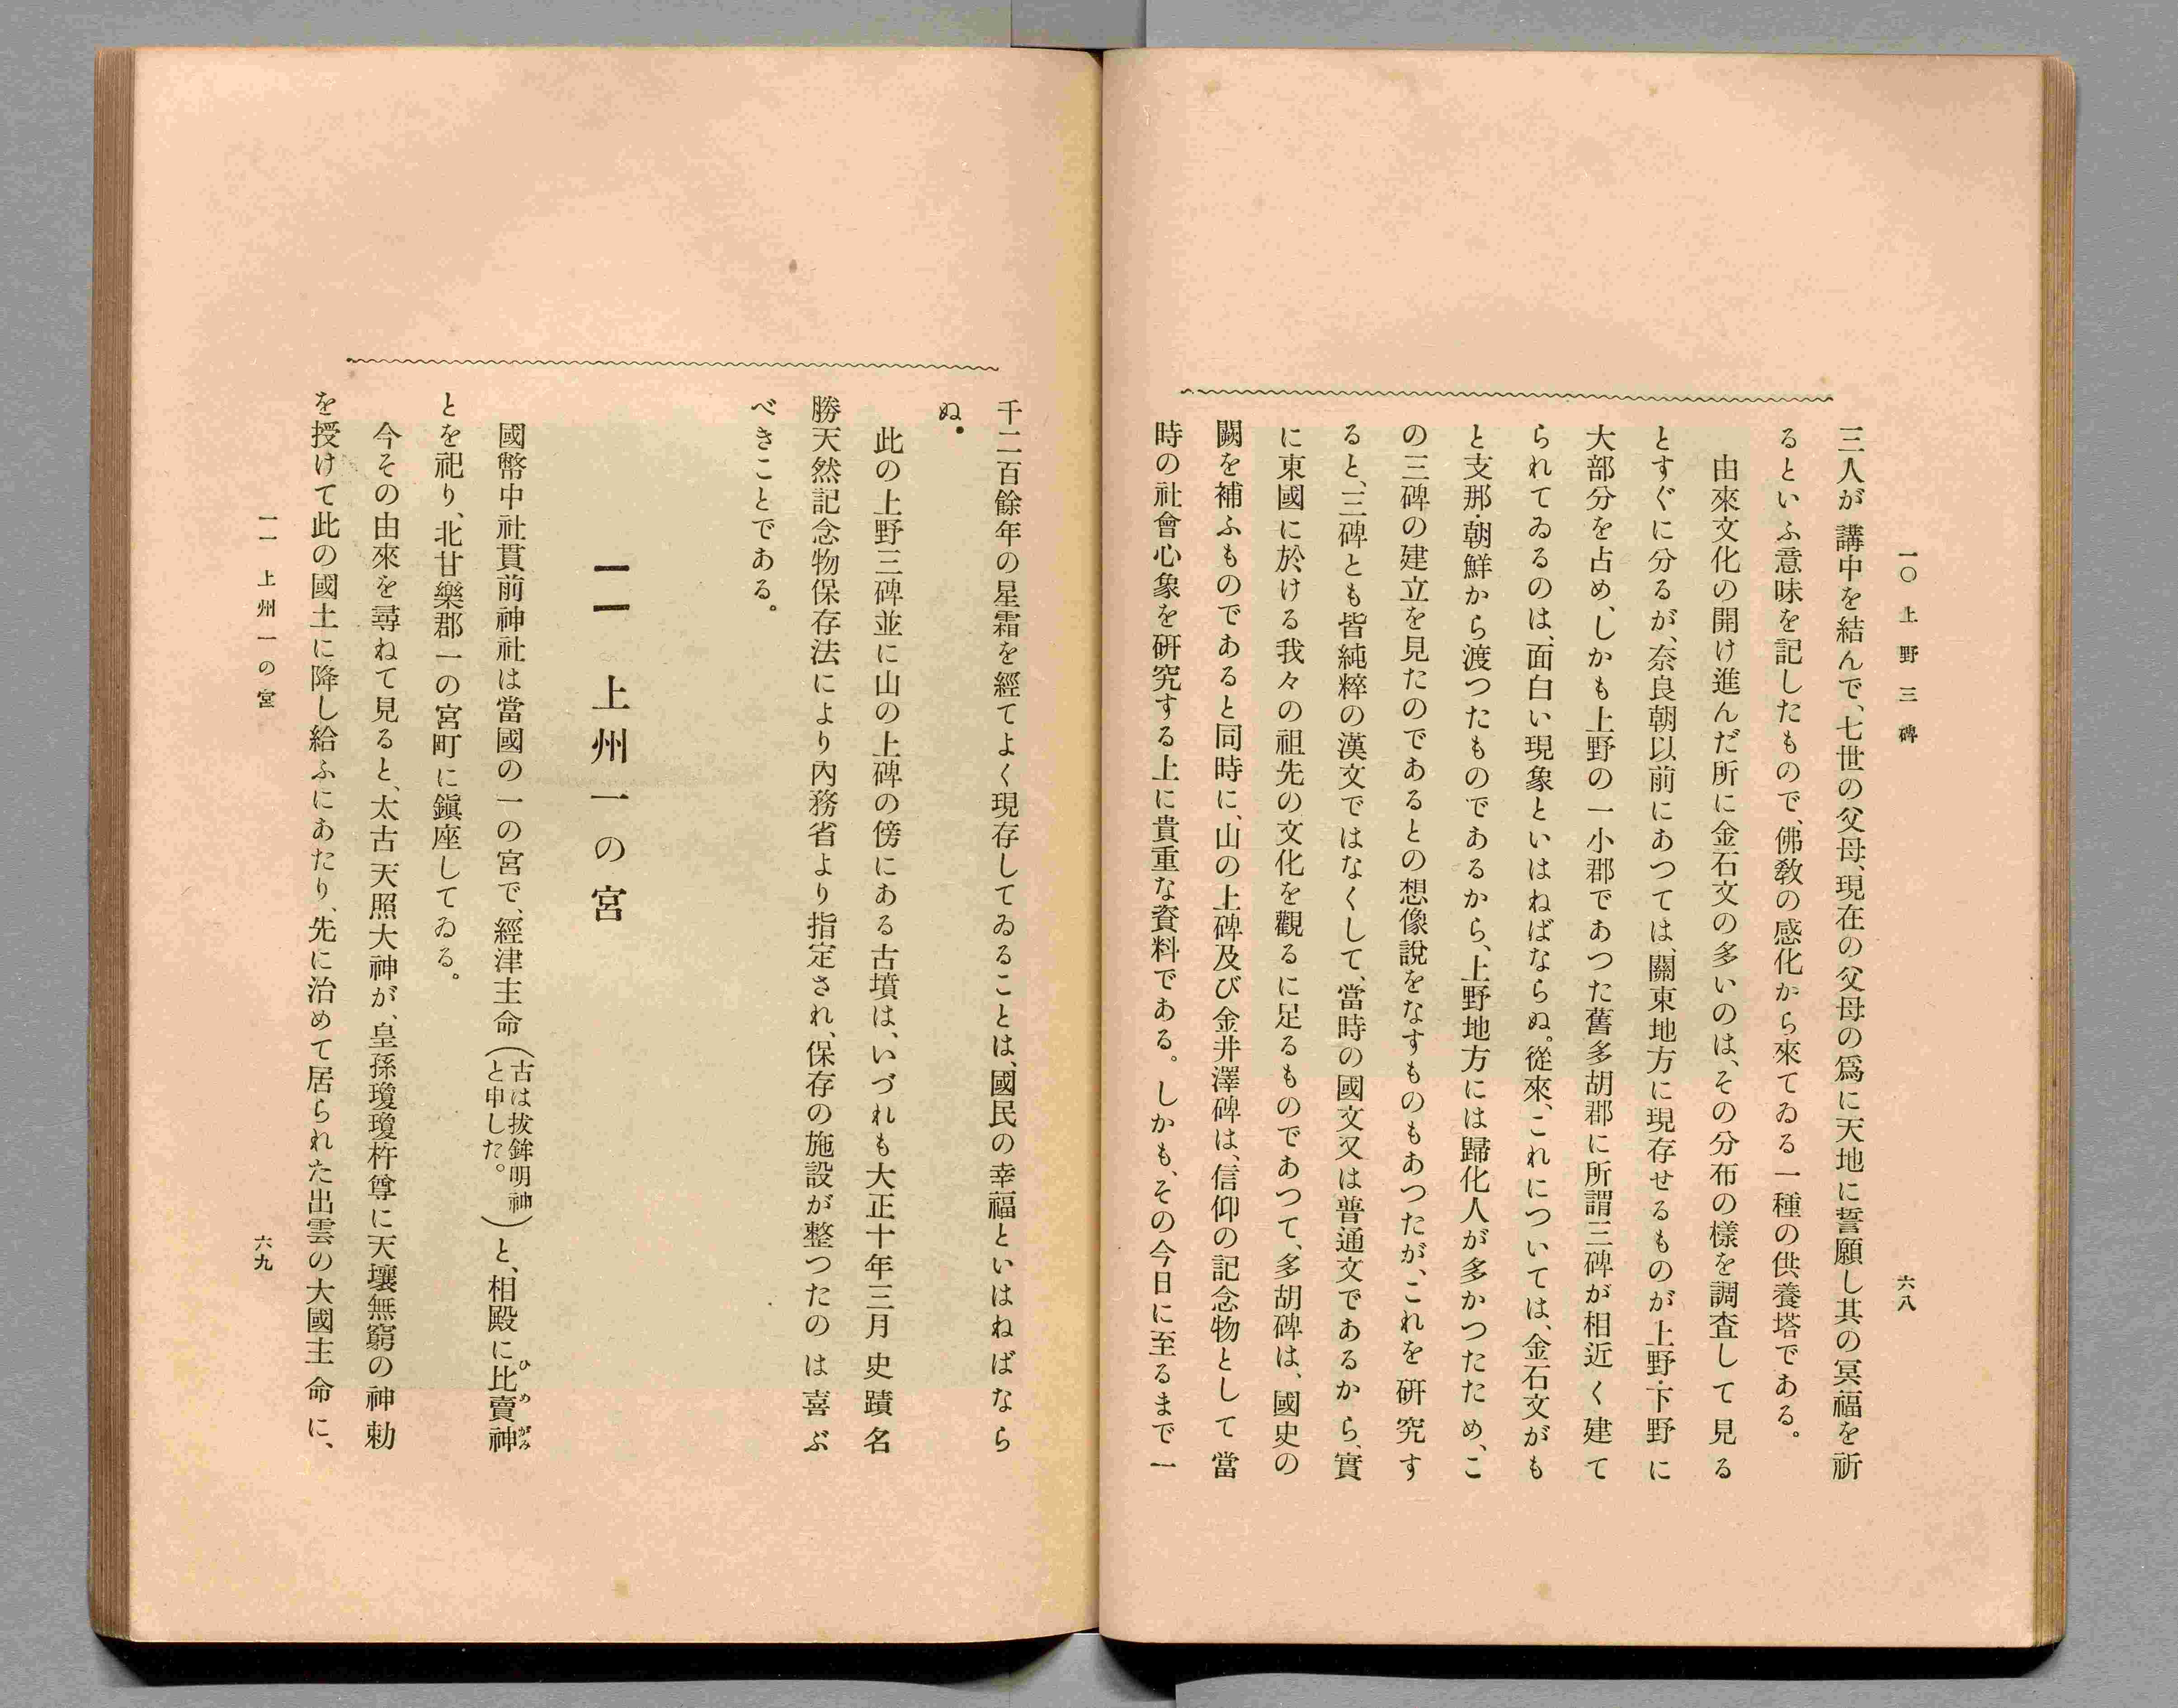 一〇 上野三碑
六八
三人が講中を結んで、七世の父母、現在の父母の爲に天地に誓願し其の冥福を祈
るといふ意味を記したもので、佛敎の感化から來てゐる一種の供養塔である。
由來文化の開け進んだ所に金石文の多いのは、その分布の樣を調査して見る
とすぐに分るが、奈良朝以前にあつては、關東地方に現存せるものが上野・下野に
大部分を占め、しかも上野の一小郡であつた舊多胡郡に所謂三碑が相近く建て
られてゐるのは、面白い現象といはねばならぬ。從來、これについては、金石文がも
と支那・朝鮮から渡つたものであるから、上野地方には歸化人が多かつたため、こ
の三碑の建立を見たのであるとの想像說をなすものもあつたが、これを硏究す
ると、三碑とも皆純粹の漢文ではなくして、當時の國文又は普通文であるから、實
に東國に於ける我々の祖先の文化を觀るに足るものであつて、多胡碑は、國史の
闕を補ふものであると同時に、山の上碑及び金井澤碑は、信仰の記念物として當
時の社會心象を硏究する上に貴重な資料である。しかも、その今日に至るまで一
千二百餘年の星霜を經てよく現存してゐることは、國民の幸福といはねばなら
ぬ。
此の上野三碑並に山の上碑の傍にある古墳は、いづれも大正十年三月史蹟名
勝天然記念物保存法により內務省より指定され、保存の施設が整つたのは喜ぶ
べきことである。
一一 上州一の宮
國幣中社貫前神社は當國の一の宮で、經津主命(古は拔鉾明神と申した。)と、相殿に比賣神ひめがみ
とを祀り、北甘樂郡一の宮町に鎭座してゐる。
今その由來を尋ねて見ると、太古天照大神が、皇孫瓊瓊杵尊に天壤無窮の神勅
を授けて此の國土に降し給ふにあたり、先に治めて居られた出雲の大國主命に、
一一 上州一の宮
六九